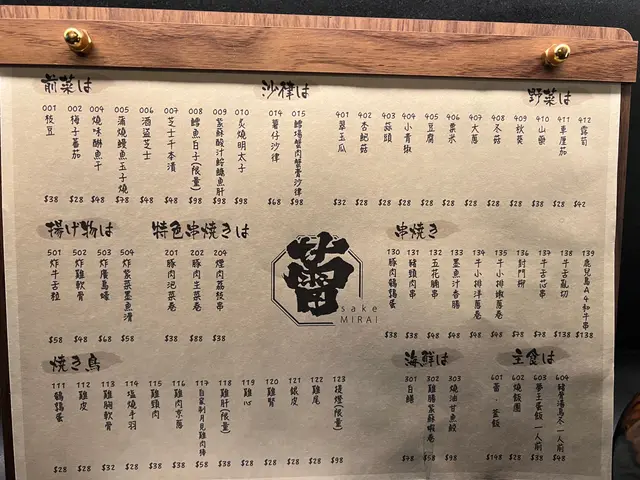 前菜は
001 枝豆 $38
002 梅子蕃茄 $38
004 燒味醂魚干 $48
005 蒲燒鰻魚玉子燒 $78
006 酒盜芝士 $48
007 芝士千本漬 $48
008 鱈魚白子(限量) $98
009 蔥酸汁鮟鱇魚肝 $98
010 炙燒明太子 $98
沙律は
014 薯仔沙律 $68
015 鱈場蟹肉蟹膏沙律 $98
野菜は
401 翠玉瓜 $32
402 杏鮑菇 $28
403 蒜頭 $28
404 小青椒 $28
405 豆腐 $28
406 粟米 $28
407 大蔥 $28
408 冬菇 $28
409 秋葵 $28
410 山藥 $28
411 車厘茄 $28
412 露筍 $42
揚げ物は
501 炸牛舌粒 $58
502 炸雞軟骨 $48
503 炸廣島蠔 $68
504 炸紫菜墨魚滑 $58
特色串焼きは
201 豚肉泡菜卷 $38
202 豚肉生菜卷 $88
204 煙肉荔枝串 $38
蕾
sake
MIRAI
串焼き
130 豚肉鵪鶉蛋 $38
131 豬頸肉串 $38
132 五花腩串 $48
133 墨魚汁香腸 $48
134 千小排洋蔥卷 $48
135 千小排嫩蔥卷 $48
136 封門柳 $78
137 牛舌芯串 $78
138 牛舌亂切 $138
139 鹿兒島A4和牛串 $138
焼き鳥
111 鵪鶉蛋 $28
112 雞皮 $28
113 雞胸軟骨 $32
114 塩燒手羽 $28
115 雞頸肉 $38
116 雞肉京蔥 $38
117 自家制月見雞肉棒 $58
118 雞肝(限量) $38
119 雞心 $28
120 雞腎 $28
121 銀皮 $28
122 雞尾 $28
123 提燈(限量) $98
海鮮は
301 白鱔 $78
302 雞膝紫蘇蝦卷 $58
303 燒油甘魚鮫 $98
主食は
601 蕾 釜飯 $148
602 燒飯團 $28
603 夢王蛋飯 一人前 $38
604 稻庭烏冬 一人前 $48